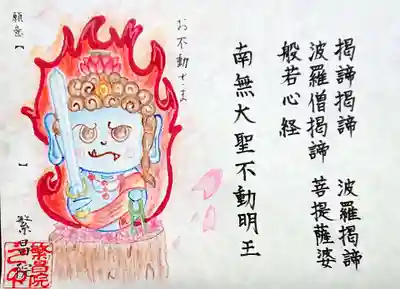 羯諦羯諦　波羅羯諦
波羅僧羯諦　菩提薩婆
般若心経
南無大聖不動明王
お不動さま
願意【　】
繁昌院